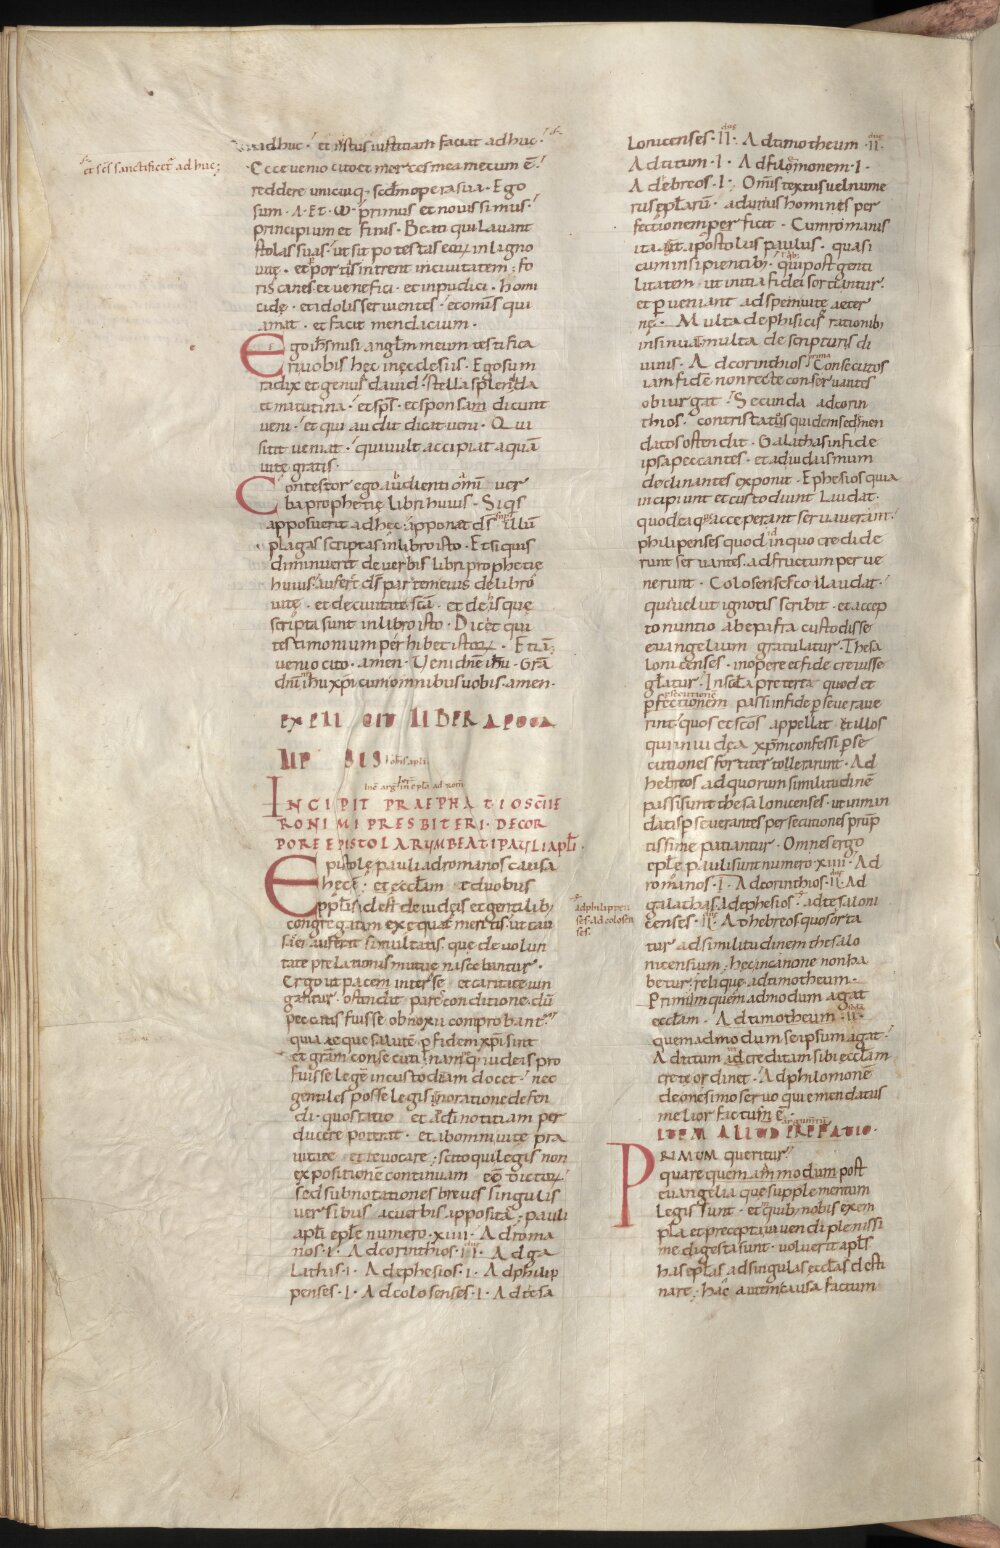 adhuc· et iustus iustitiam faciat adhuc·
et scs sanctificet adhuc;
Ecce uenio cito et merces mea mecum ē·
reddere unicuiq; secdm opera sua· Ego
sum· A· et· ω· primus et nouissimus·
principium et finis· Beati qui lauant
stolas suas· ut sit potestas eorum in ligno
uitę· et portis intrent in ciuitatem; fo
ris canes et uenefici· et inpudici· homi
cidę· et idolis seruientes· et omīs qui
amat· et facit mendacium·
Ego ihs misi anglm meum testifica
ri uobis hec in ęcclesiis· Ego sum
radix et genus dauid· stella splendida
et matutina· et sps· et sponsam dicunt
ueni· et qui audit dicat ueni· Qui
sitit ueniat· qui uult accipiat aquā
uitę gratis·
Contestor ego audienti omī uer
ba prophetię libri huius· Siqs
apposuerit ad hęc· apponat ds super illū
plagas scriptas in libro isto· Et si quis
diminuerit de uerbis libri prophetie
huius· auferet ds partem eius de libro
uitę· et de ciuitate scā· et de is que
scripta sunt in libro isto· Dicet qui
testimonium perhibet istorum· Etiā
uenio cito· amen· Ueni dnē ihu· Grā
dni ihu xpi cum omnibus uobis· amen·
EXPLI CIT LIBER APOCA
LIP SIS iohis apli
Inē arg in epła ad rom
INCIPIT PRAEPHATIO SCI IE
RONIMI PRESBITERI· DE COR
PORE EPISTOLARUM BEATI PAULI apłi·
Epistolę pauli ad romanos causa
hęc ē; et ęccłam e duobus
popłis· id est de iudęis et gentilib;
congregatam exequat meritis· ut cau
sa ei auferat simultatis· que de uolun
tate prelationis mutuę nascebantur·
Ergo ut pacem inter se et caritate iun
gantur· ostendit pare conditione dū
peccatis fuisse obnoxii comprobantur
quia eque salutē p fidem xpi sint
et gratiam consecuti· nam q; iudeis pro
fuisse legē in custodiam docet· nec
gentiles posse legis ignoratione defen
di· quos ratio et ad di notitiam per
ducere poterat· et ab omni uitę pra
uitate et reuocare; scito qui legis non
expositionē continuam eē dictorum·
sed subnotationes breues singulis
uersibus ac uerbis appositā; pauli
apłi epłe numero· xiiii· Ad roma
nos· i· Ad corinthios· ii· Ad ga
lathas· i· Ad ephesios· i· Ad philip
penses· i· Ad colosenses· i· Ad tesa
lonicenses· II· Ad timotheum· II·
Ad titum· I· Ad filimonem· I·
Ad ebreos· I· Omīs textus uel nume
rus epłarū· ad unius hominis per
fectionem perficit· Cum romanis
ita sit apostolus paulus· quasi
cum insipientib;· qui post genti
litatem· ut initia fidei sortiantur·
et perueniant ad spem uitę aeter
nę· Multa de phisicis rationibus
insinuat multa de scripturis di
uinis· Ad corinthios prima Consecutos
iam fidē non recte conseruantes
obiurgat· Secunda ad corin
thios· contristatos quidem sed emen
datos ostendit· Galathas in fide
ipsa peccantes· et ad iudaismum
declinantes exponit· Ephesios quia
incipiunt et custodiunt laudat·
quod ea que acceperant seruauerant·
philipenses quod in quo credide
runt seruantes· ad fructum perue
nerunt· Colosenses collaudat·
qui uelut ignotis scribit· et accep
to nuntio ab epafra custodisse
euangelium gratulatur· Thesa
lonicenses· in opere et fide creuisse
głatur· In secła preterea quod et
psecutionē
pfectionem passi in fide pseueraue
rint· quos et scōs appellat et illos
qui in iudęa xpm confessi pse
cutiones fortiter tollerarunt· Ad
hebreos ad quorum similitudinē
passi sunt thesalonicenses· ut in man
datis pseuerantes persecutiones prūp
tissime patiantur· Omnes ergo
epłe pauli sunt numero xiiii· Ad
romanos· I· Ad corinthios· II· Ad
galathas· Ad ephesios· ad tesaloni
ad philippen
ses· Ad colosen
ses·
censes· II· Ad hebreos quos orta
tur ad similitudinem thesalo
nicensium; hęc in canone non ha
betur; relique ad timotheum·
Primum quem admodum agat
ęccłam· Ad timotheum· II·
quem admodum se ipsum agat·
Ad titum ad creditam sibi ęccłam
crete ordinet· Ad philomonē
de onesimo seruo qui emendatus
melior factum ē·
argumtū
ITEM ALIUD PREFATIO·
PRIMUM queritur·
quare quem ammodum post
euangelia que supplementum
legis sunt· et in quib; nobis exem
pla et precepta uiuendi plenissi
me digesta sunt· uoluerit apłs
has epłas ad singulas ęccłas desti
nare; hac autem causa factum